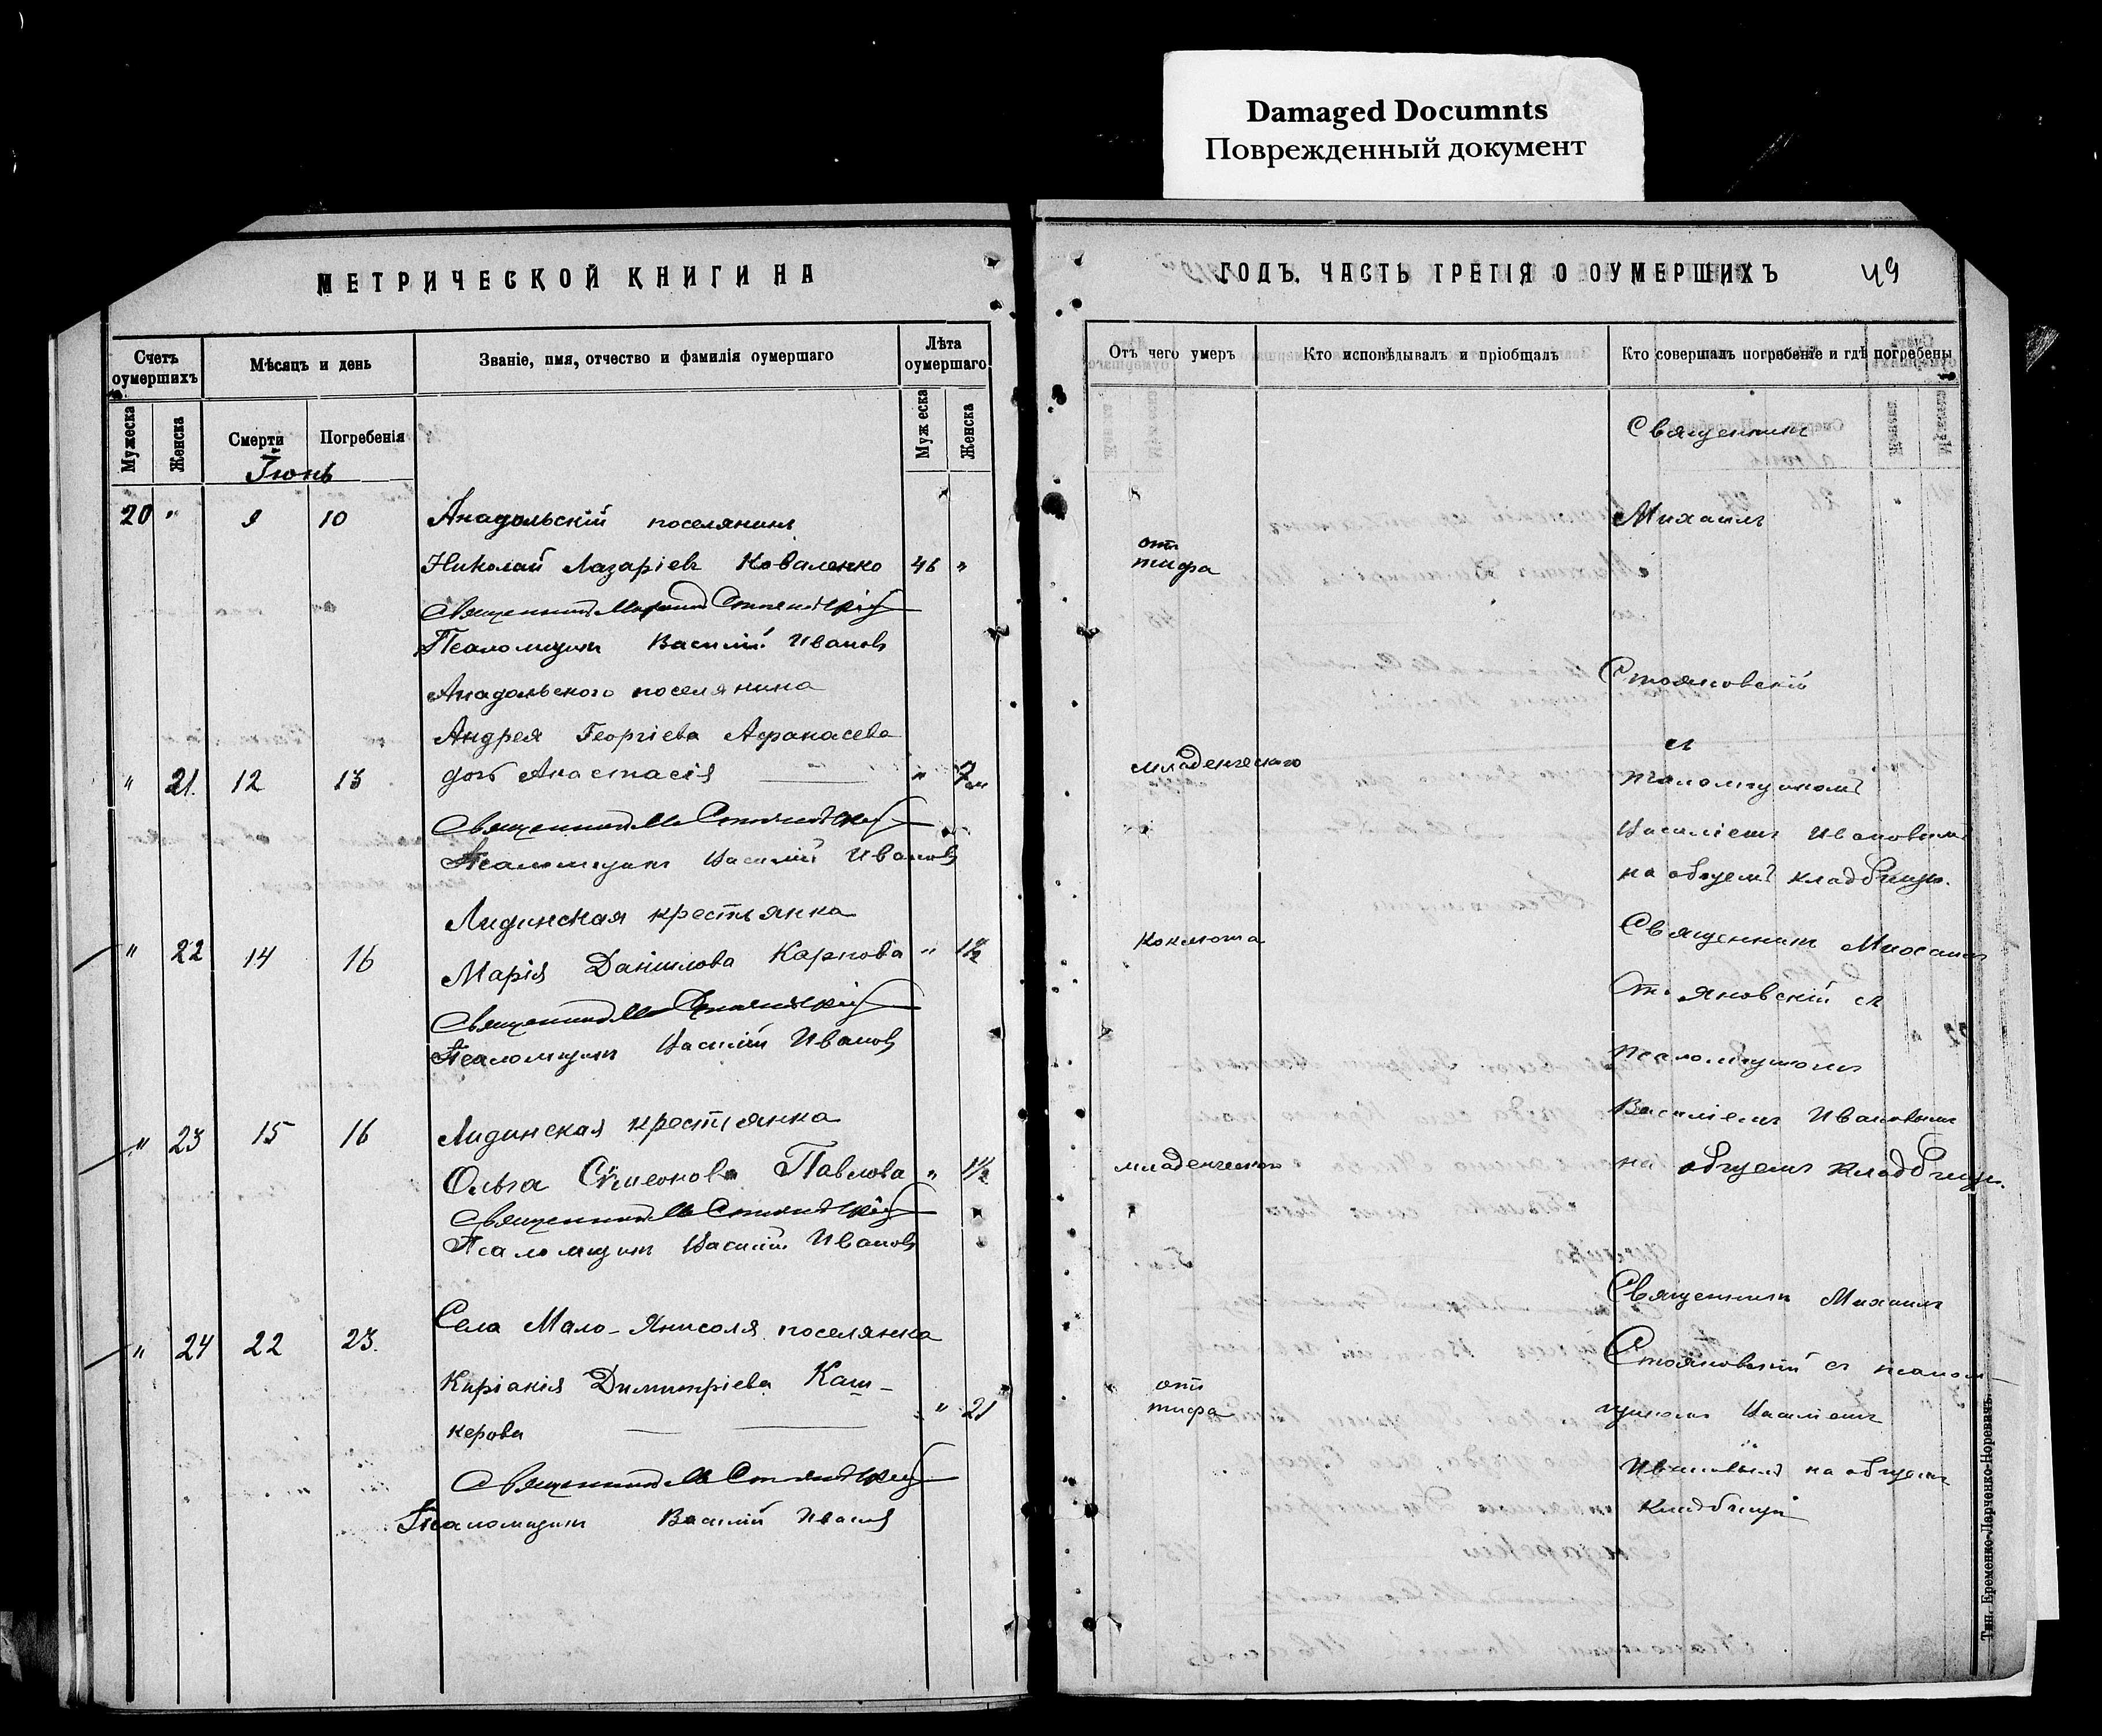 Damaged Documnts
Поврежденный документ
МЕТРИЧЕСКОЙ КНИГИ НА
ГОДЪ, ЧАСТЬ ТРЕТІЯ О ОУМЕРШИХЪ
49
Счетъ оумершихъ
Мѣсяцъ и день
Званіе, имя, отчество и фамилія оумершаго
Лѣта оумершаго
Мужеска
Женска
Смерти
Погребенія
Муж еска
Женска
Іюнь
20 " 9 10 Анадольскій поселянинъ
Николай Лазаріевъ Коваленко 46 "
Священникъ Михаилъ Стояновскій
Псаломщикъ Василій Ивановъ
Анадольского поселянина
Андрея Георгіева Афанасева
" 21. 12 13 дочь Анастасія " 7 м
Священникъ М Стояновскій
Псаломщикъ Василій Ивановъ
Лидинская крестьянка
" 22 14 16 Марія Даніилова Карпова " 1½
Священникъ М Стояновскій
Псаломщикъ Василій Ивановъ
" 23 15 16 Лидинская крестьянка
Ольга Симеонова Павлова " 1½
Священникъ М Стояновскій
Псаломщикъ Василій Ивановъ
Села Мало-Янисоля поселянка
" 24 22 23. Киріакія Димитріева Каш-
керова " 21
Священникъ М Стояновскій
Псаломщикъ Василій Ивановъ
Отъ чего умеръ
Кто исповѣдывалъ и пріобщалъ
Кто совершалъ погребеніе и гдѣ погребены
Священникъ
Михаилъ
отъ
тифа
Стояновскій
съ
младенческаго
псаломщикомъ
Василіемъ Ивановымъ
на общемъ кладбищѣ.
коклюша
Священникъ Михаилъ
Стояновскій съ
псаломщикомъ
Василіемъ Ивановымъ
младенческаго
на общемъ кладбищѣ.
Священникъ Михаилъ
Стояновскій съ псалом-
отъ
тифа
щикомъ Василіемъ
Ивановымъ на общемъ
кладбищѣ
Тип. Еременко-Ларченко-Норевичъ